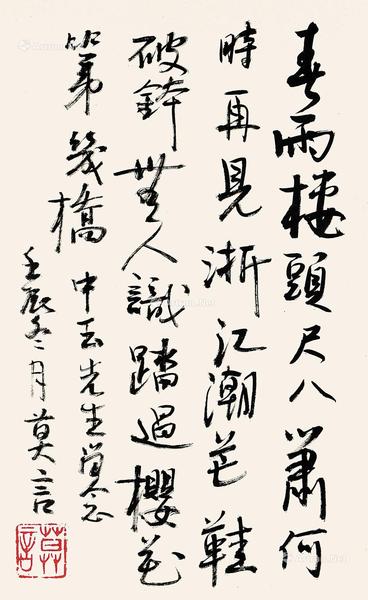 春雨樓頭尺八簫何
時再見浙江潮芒鞋
破鉢無人識踏過櫻花
第幾橋
中玉先生學念
壬辰冬月莫言
莫言